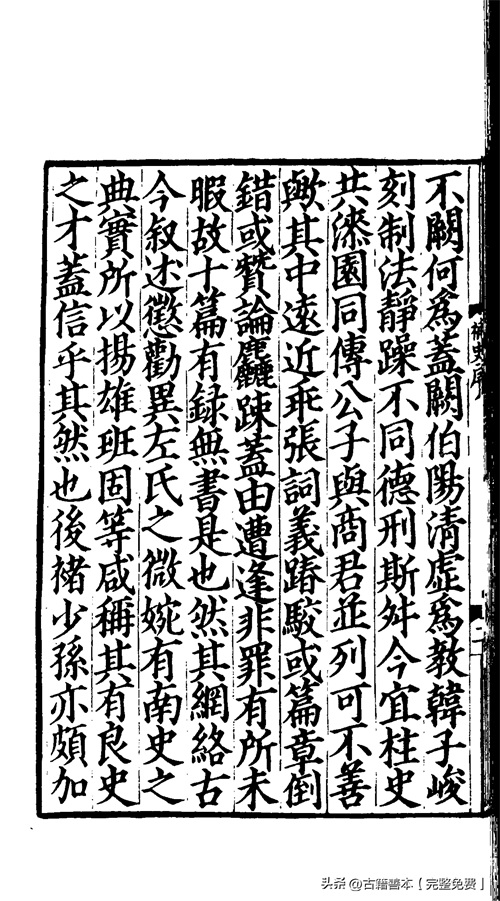 不闕何爲蓋闕伯陽清虛爲教韓子峻
刻制法靜躁不同德刑斯舛今宜柱史
共漆園同傳公子與商君並列可不善
歟其中遠近乖張詞義踳駁或篇章倒
錯或贊論麤踈蓋由遭逢非罪有所未
暇故十篇有録無書是也然其網絡古
今叙述懲勸異左氏之微婉有南史之
典實所以揚雄班固等咸稱其有良史
之才蓋信乎其然也後褚少孫亦頗加
補史序
二
头条 @古籍善本【完整免费】